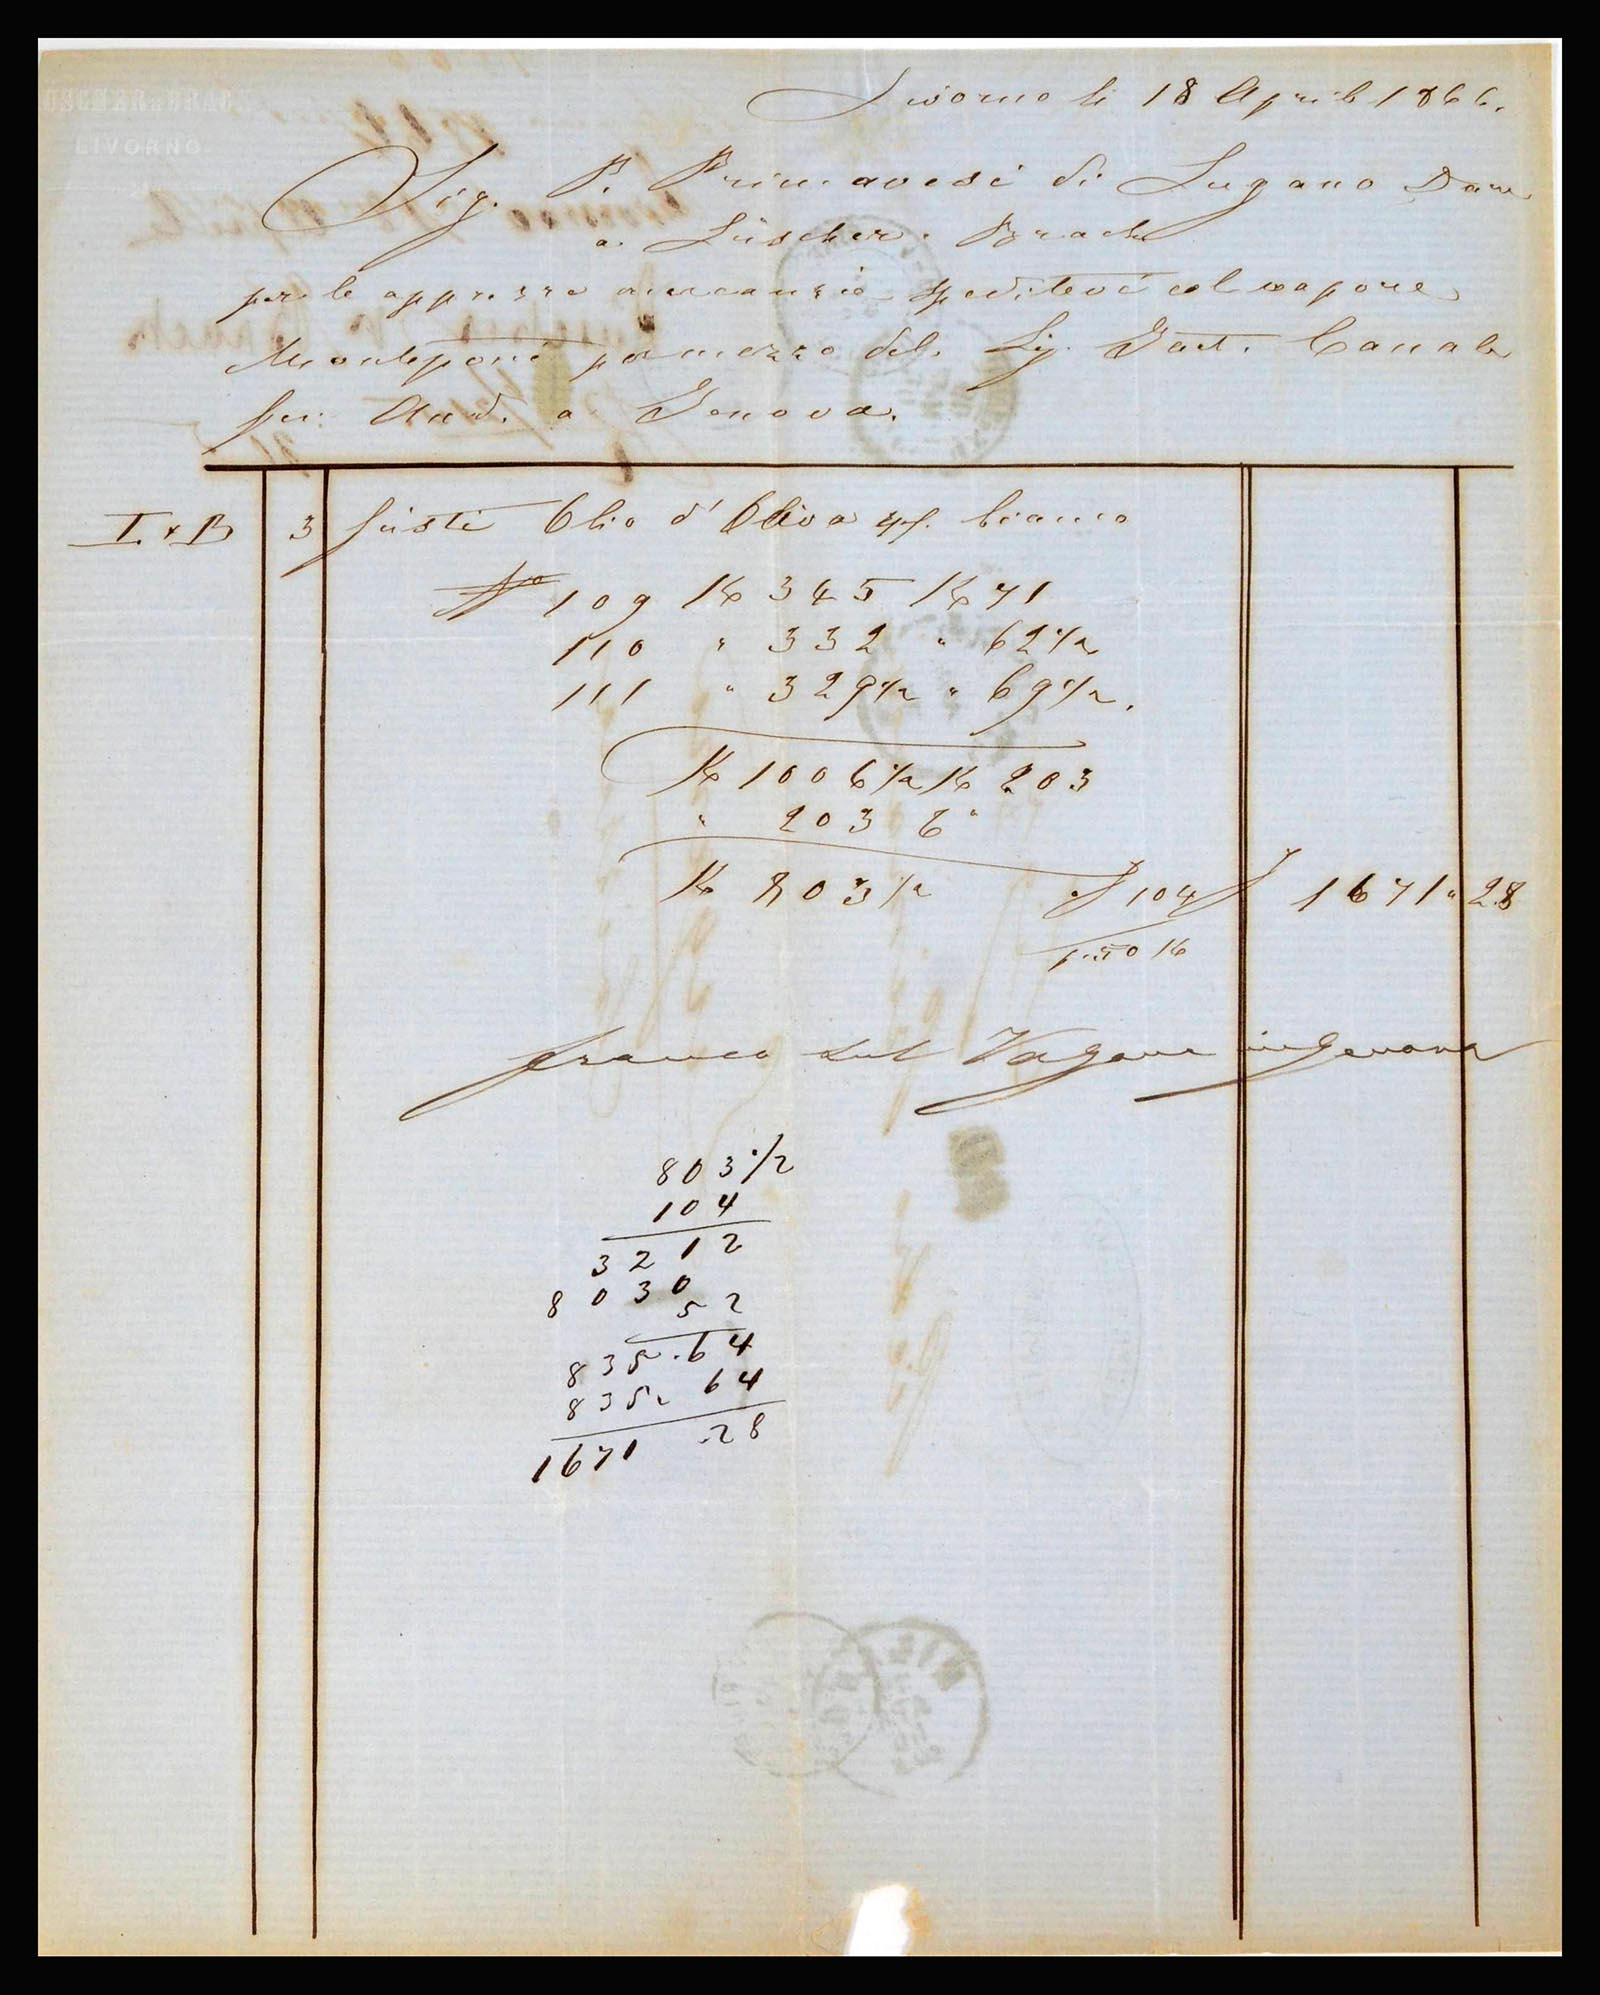 LIVORNO
Livorno li 18 April 1866.
Sig. P. Primavesi di Lugano Dare
a Lüscher Brach
per le appresso mercanzie speditevi col vapore
Monteponi per mezzo del Sig. Canale
a Genova.
L & B 3 fusti Olio d'Oliva bianco
No 109 K 345 K 71
110 " 332 " 62 1/2
111 " 329 1/2 " 69 1/2.
K 1006 1/2 K 203
" 203 "
K 803 1/2 f 104 f 1671 " 28
p. 50 K
franco sul Vagone in Genova
803 1/2
104
3212
8030
52
835.64
835.64
1671.28